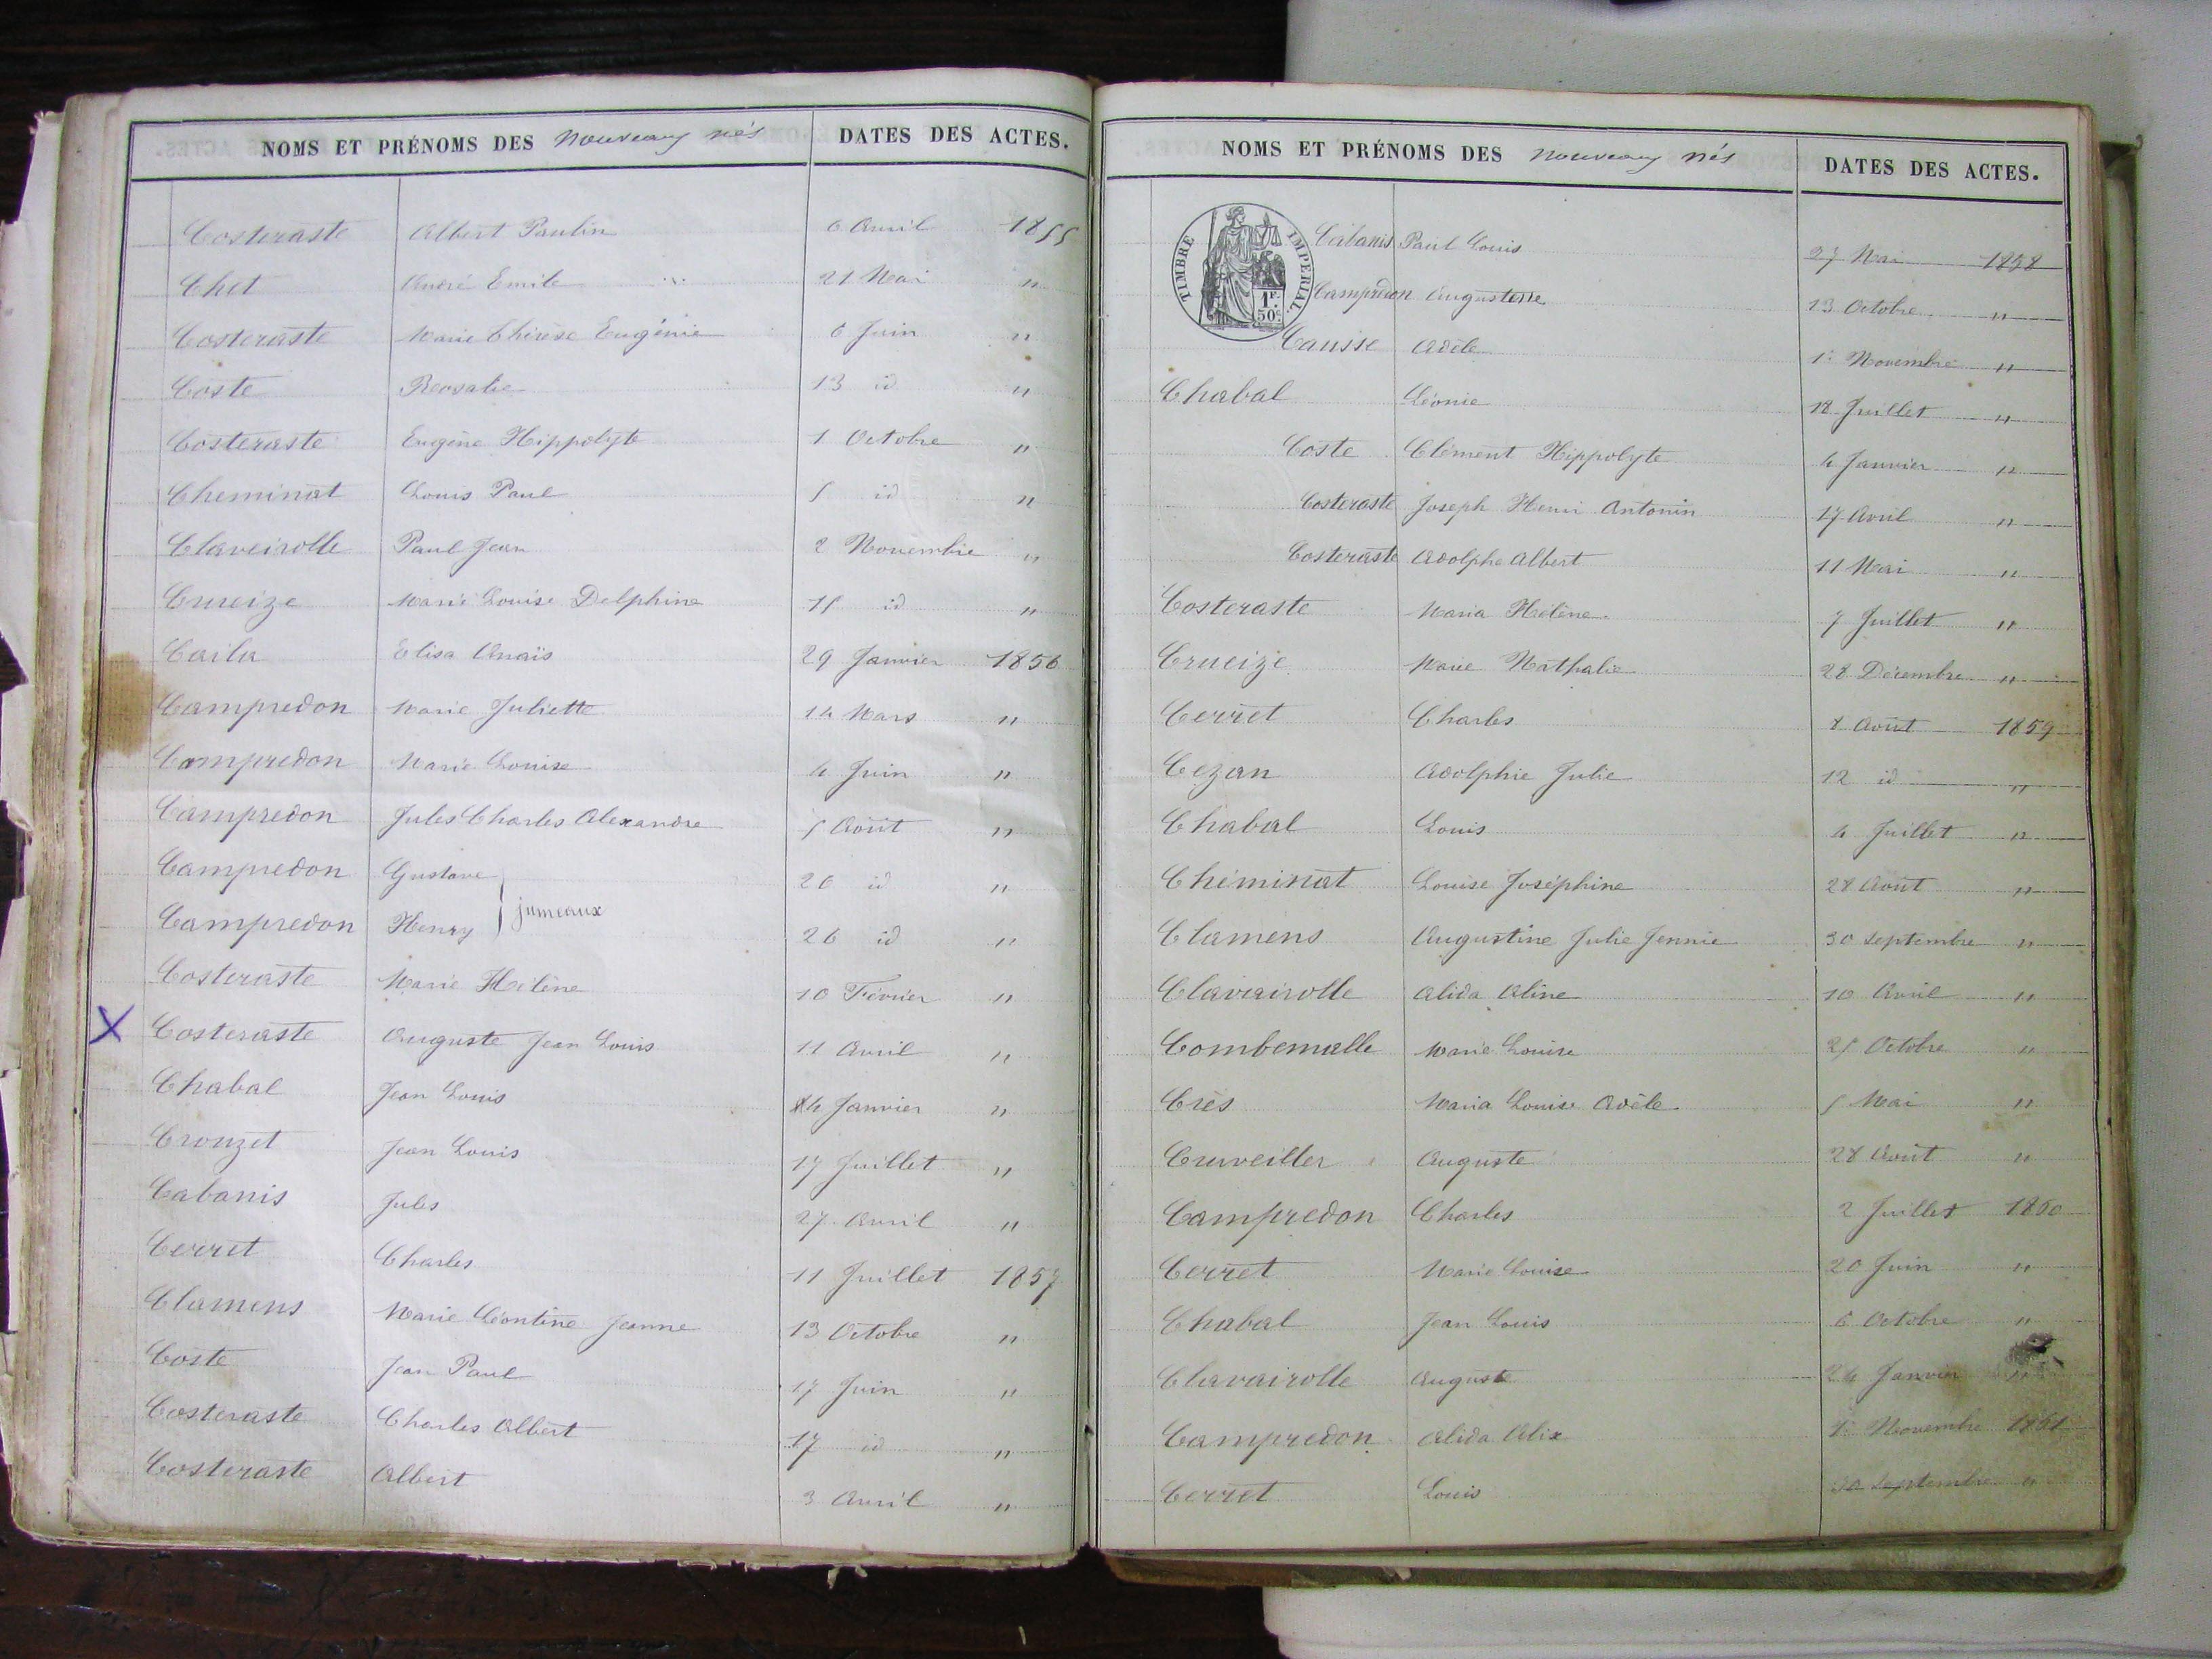 NOMS ET PRÉNOMS DES Nouveaux nés DATES DES ACTES.
Costeraste Albert Paulin 6 Avril 1855
Chet André Emile 21 Mai "
Costeraste Marie Thérèse Eugénie 6 Juin "
Coste Rosalie 13 id "
Costeraste Eugène Hippolyte 1 Octobre "
Cheminat Louis Paul 5 id "
Claveirolle Paul Jean 2 Novembre "
Crueize Marie Louise Delphine 15 id "
Caila Elisa Anaïs 29 Janvier 1856
Campredon Marie Juliette 14 Mars "
Campredon Marie Louise 4 Juin "
Campredon Jules Charles Alexandre 5 Août "
Campredon Gustave 26 id "
jumeaux
Campredon Henry 26 id "
Costeraste Marie Hélène 10 Février "
X Costeraste Auguste Jean Louis 11 Avril "
Chabal Jean Louis Janvier "
Crouzet Jean Louis 17 Juillet "
Cabanis Jules 27 Avril "
Cerret Charles 11 Juillet 1857
Clamens Marie Léontine Jeanne 13 Octobre "
Coste Jean Paul 17 Juin "
Costeraste Charles Albert 17 id "
Costeraste Albert 3 Avril "
NOMS ET PRÉNOMS DES Nouveaux nés DATES DES ACTES.
TIMBRE IMPERIAL. 1F. 50c.
Cabanis Paul Louis 27 Mai 1858
Campredon Augustine 13 Octobre "
Causse Adèle 1er Novembre "
Chabal Léonie 12 Juillet "
Coste Clément Hippolyte 4 Janvier "
Costeraste Joseph Henri Antonin 17 Avril "
Costeraste Adolphe Albert 11 Mai "
Costeraste Maria Hélène 7 Juillet "
Crueize Marie Nathalie 28 Décembre "
Cerret Charles 8 Août 1859
Cezan Adolphie Julie 12 id "
Chabal Louis 4 Juillet "
Chéminat Louise Joséphine 28 Août "
Clamens Augustine Julie Jennie 30 Septembre "
Clavairolle Alida Aline 10 Avril "
Combemalle Marie Louise 25 Octobre "
Crès Maria Louise Adèle 5 Mai "
Cruveiller Auguste 28 Août "
Campredon Charles 2 Juillet 1860
Cerret Marie Louise 20 Juin "
Chabal Jean Louis 6 Octobre "
Clavairolle Auguste 24 Janvier "
Campredon Alida Alix 1er Novembre 1861
Cerret Louis Septembre "